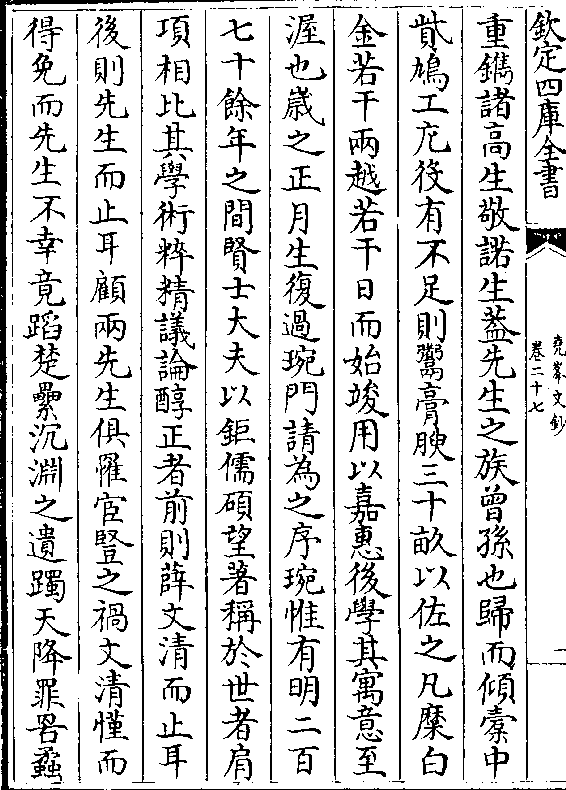 欽定四庫全書
堯峯文鈔
卷二十七
一
重鐫諸高生敬諾生葢先生之族曾孫也歸而傾槖中
貲鳩工庀役有不足則鬻膏腴三十畝以佐之凡糜白
金若干兩越若干日而始竣用以嘉惠後學其寓意至
渥也嵗之正月生復過琬門請為之序琬惟有明二百
七十餘年之間賢士大夫以鉅儒碩望著稱於世者肩
項相比其學術粹精議論醇正者前則薛文清而止耳
後則先生而止耳顧兩先生俱罹宦豎之禍文清僅而
得免而先生不幸竟蹈楚纍沉淵之遺躅天降罪罟蟊